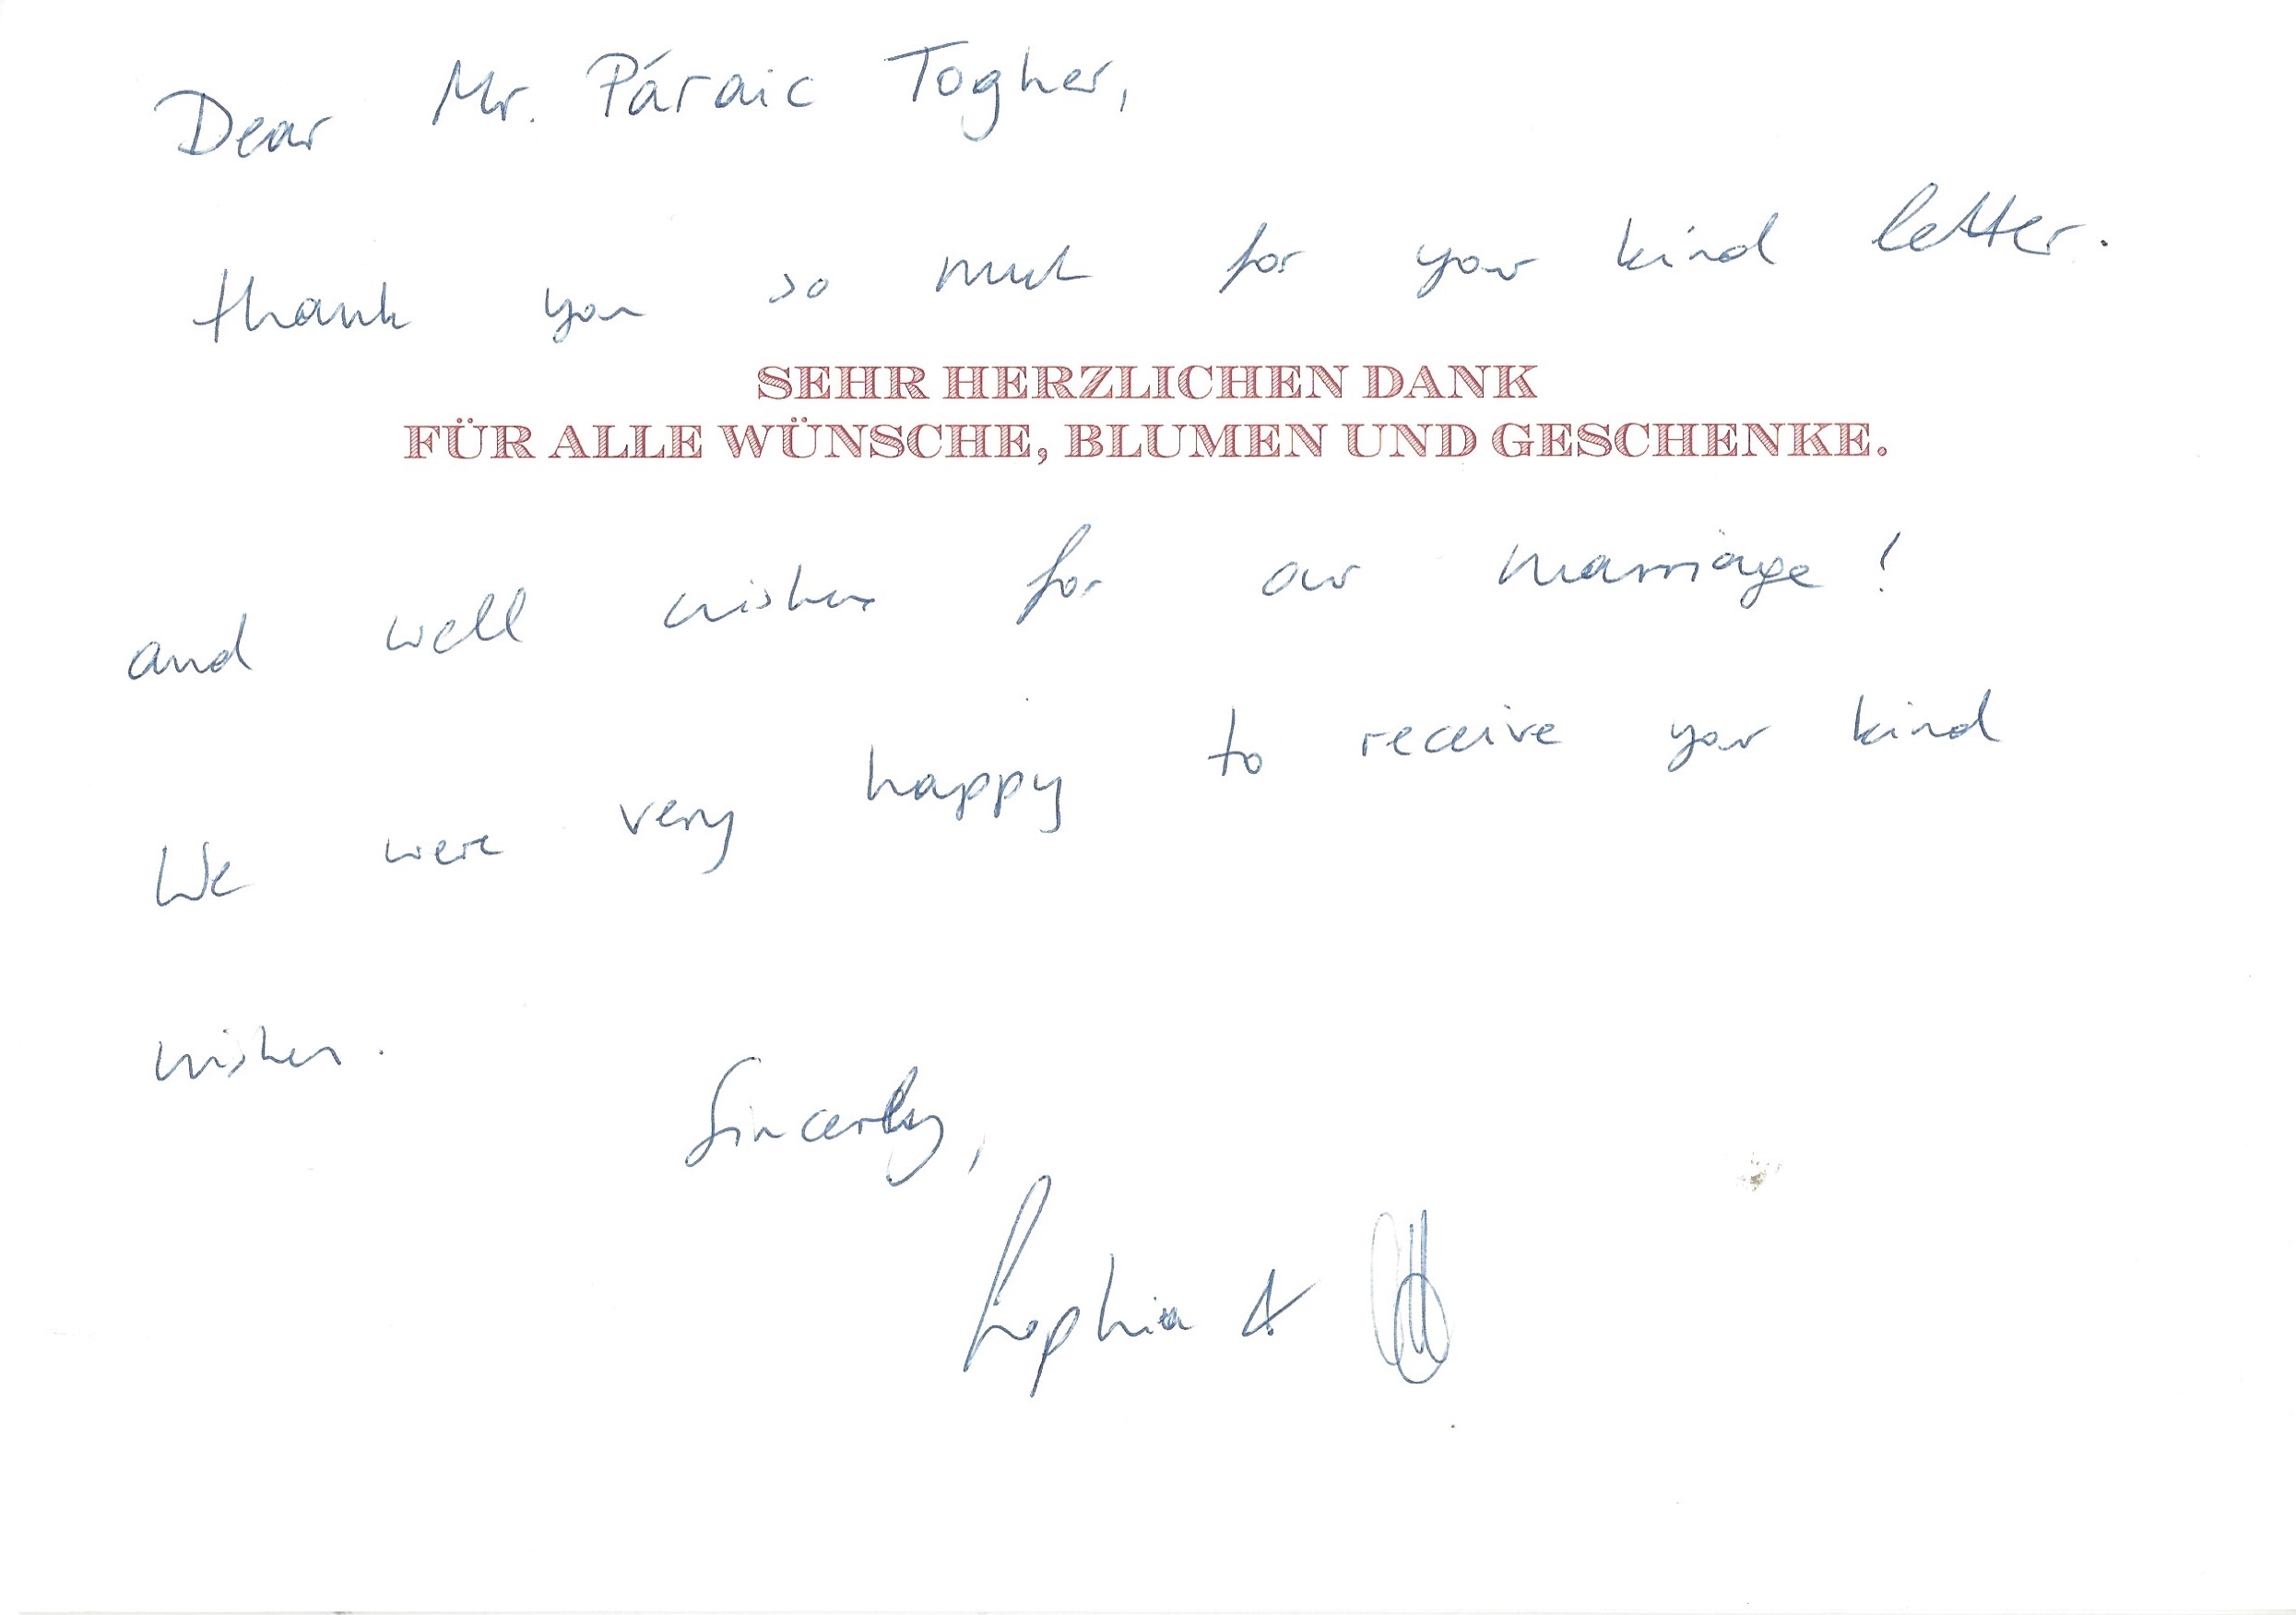 Dear Mr. Páraic Togher,
thank you so much for your kind letter.
SEHR HERZLICHEN DANK
FÜR ALLE WÜNSCHE, BLUMEN UND GESCHENKE.
and well wishes for our marriage!
We were very happy to receive your kind
wishes.
Sincerly,
Sophia &